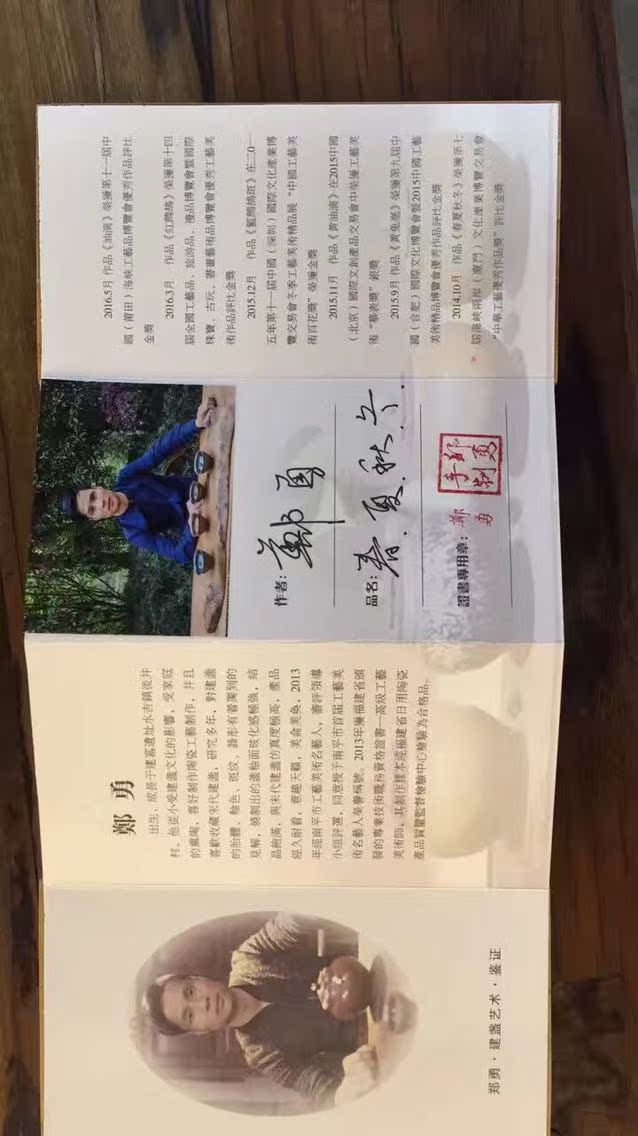 郑勇·建盏艺术·鉴证
鄭 勇
出生、成長于建窯遺址水吉鎮後井
村，他從小受建盞文化的影響，受家庭
的薰陶，喜好制作陶瓷工藝制作，并且
喜歡收藏宋代建盞，研究多年，對建盞
的胎體、釉色、斑紋、器形有着獨到的
見解，燒制出的盞釉面玻化感極強，結
晶飽滿，與宋代建盞仿真度極高，產品
經久耐看，意趣天顧，美侖美奐。2013
年經南平市工藝美術名藝人，審評領導
小組評選，同意授予南平市首屆工藝美
術名藝人榮譽稱號。2013年獲福建省頒
發的專業技術職務資格證書—高級工藝
美術師。其制作樣本送福建省日用陶瓷
產品質量監督檢驗中心檢驗為合格品。
作者：鄭勇
品名：春.夏.秋.冬.
證書專用章：鄭勇
鄭勇手制
2016.5月 作品《油滴》榮獲第十一屆中
國（莆田）海峽工藝品博覽會優秀作品評比
金獎
2016.3月 作品《紅鷓鴣》榮獲第十四
屆全國工藝品、旅游品、禮品博覽會暨國際
珠寶、古玩、書畫藝術品博覽會優秀工藝美
術作品評比金獎
2015.12月 作品《藍鷓鴣斑》在二0一
五年第十一屆中國（深圳）國際文化產業博
覽交易會冬季工藝美術精品展“中國工藝美
術百花獎”榮獲金獎
2015.11月 作品《黃油滴》在2015中國
（北京）國際文創產品交易會中榮獲工藝美
術“華表獎”銀獎
2015.9月 作品《黃兔毫》榮獲第九屆中
國（合肥）國際文化博覽會暨2015中國工藝
美術精品博覽會優秀作品評比金獎
2014.10月 作品《春夏秋冬》榮獲第七
屆海峽兩岸（廈門）文化產業博覽交易會
“中華工藝優秀作品獎”評比金獎